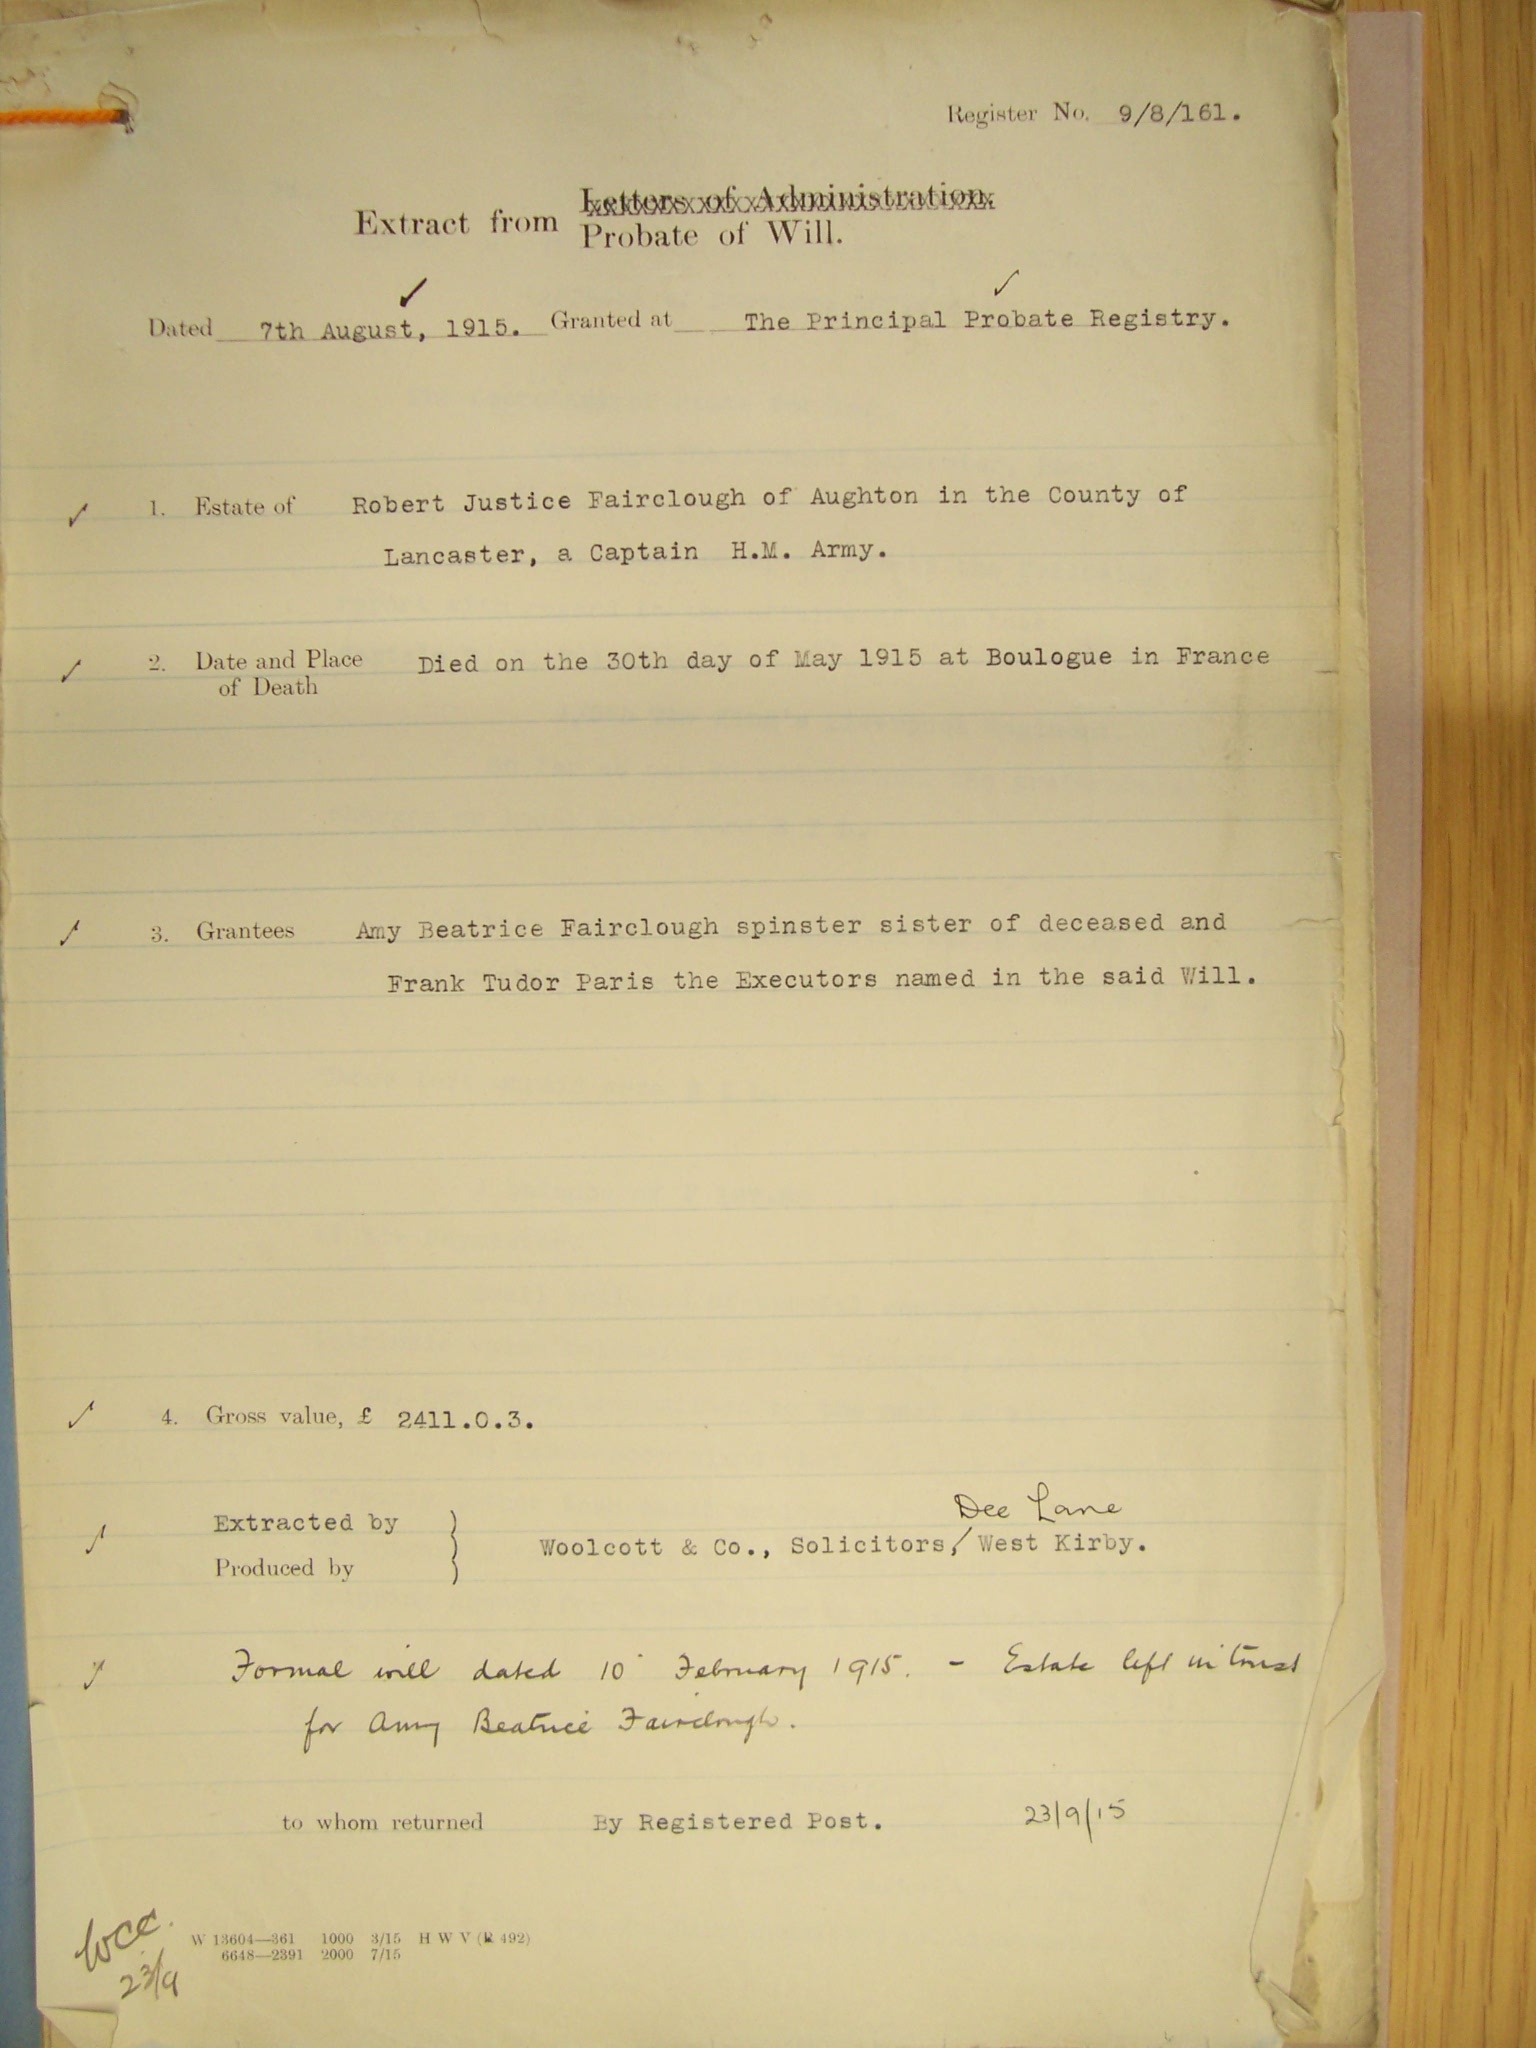 Register No. 9/8/161.
Letters of Administration.
Extract from
Probate of Will.
Dated 7th August, 1915. Granted at The Principal Probate Registry.
1. Estate of Robert Justice Fairclough of Aughton in the County of
Lancaster, a Captain H.M. Army.
2. Date and Place Died on the 30th day of May 1915 at Boulogue in France
of Death
3. Grantees Amy Beatrice Fairclough spinster sister of deceased and
Frank Tudor Paris the Executors named in the said Will.
4. Gross value, £ 2411.0.3.
Dee Lane
Extracted by
Woolcott & Co., Solicitors, / West Kirby.
Produced by
Formal will dated 10 February 1915. - Estate left in trust
for Amy Beatrice Fairclough.
to whom returned By Registered Post. 23/9/15
WCC.
23/9
W 13604—361 1000 3/15 H W V (R 492)
6648—2391 2000 7/15